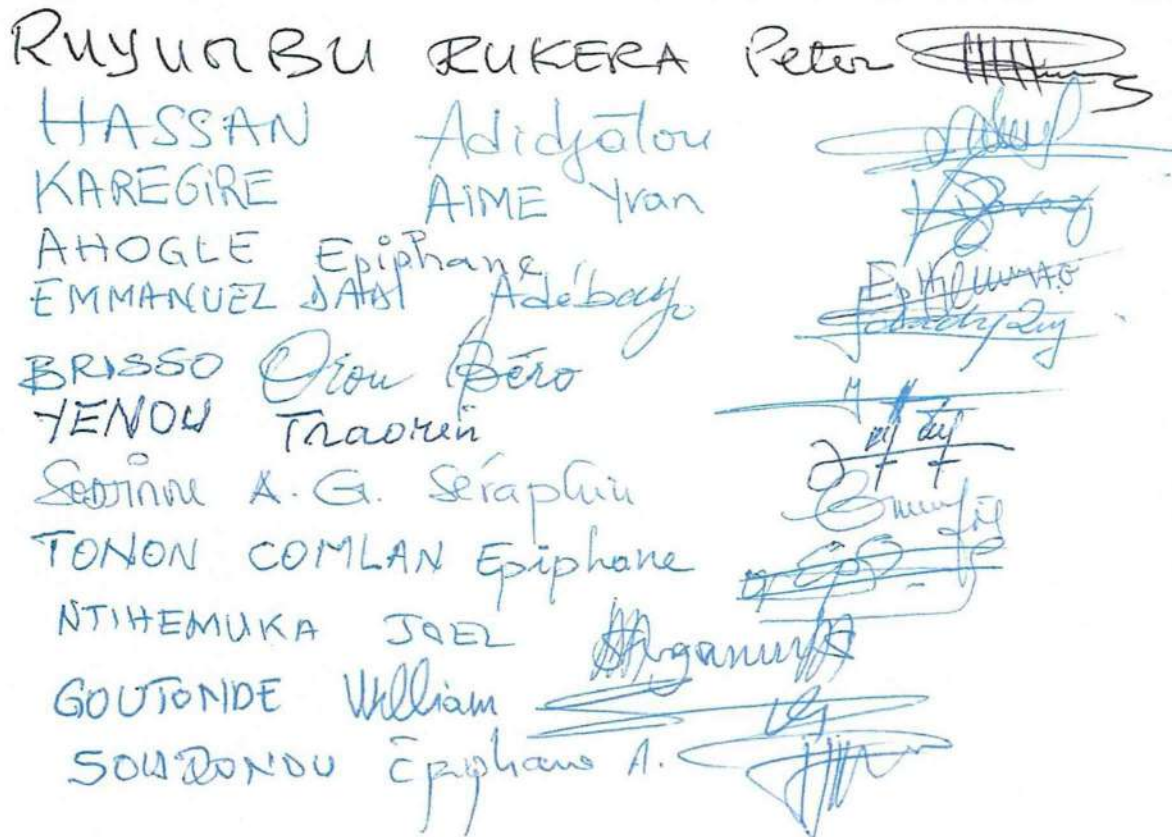 RUYUMBU RUKERA Peter
HASSAN Adidjãtou
KAREGIRE AIME Yvan
AHOGLE Epiphane
EMMANUEL DADI Adébayo
BRISSO Orou Béro
YENOU Traoren
A. G. Séraphin
TONON COMLAN Epiphane
NTIHEMUKA JOEL
GOUTONDE William
Epiphane A.